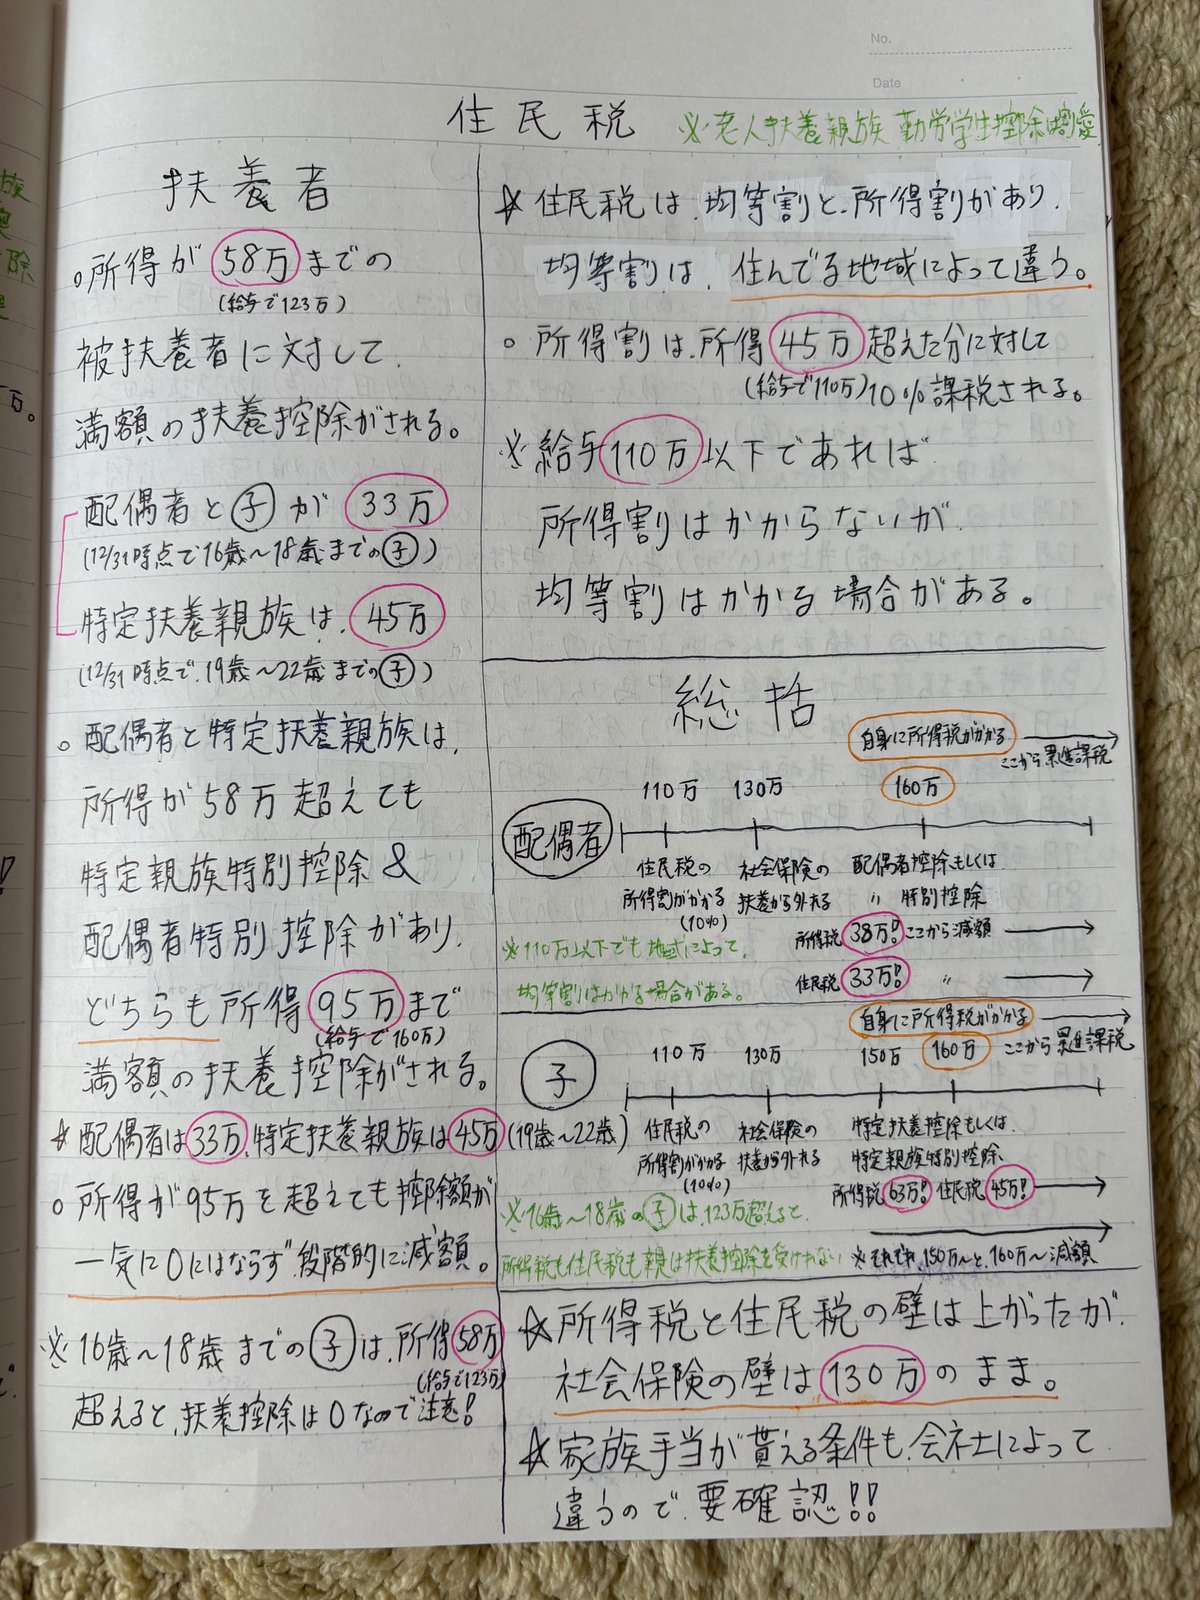 No.
Date
住民税
※老人扶養親族 勤労学生控除は割愛
扶養者
○所得が58万までの
(給与で123万)
被扶養者に対して、
満額の扶養控除がされる。
配偶者と子が33万
(12/31時点で16歳〜18歳までの子)
特定扶養親族は、45万
(12/31時点で、19歳〜22歳までの子)
○配偶者と特定扶養親族は、
所得が58万超えても
特定親族特別控除&
配偶者特別控除があり、
どちらも所得95万まで
(給与で160万)
満額の扶養控除がされる。
☆配偶者は33万、特定扶養親族は45万(19歳〜22歳)
○所得が95万を超えても控除額が
一気に0にはならず、段階的に減額。
※16歳〜18歳までの子は、所得58万
(給与で123万)
超えると、扶養控除は0なので注意!
☆住民税は、均等割と、所得割があり、
均等割は、住んでる地域によって違う。
○所得割は、所得45万超えた分に対して
(給与で110万)10%課税される。
※給与110万以下であれば
所得割はかからないが、
均等割はかかる場合がある。
総括
自身に所得税がかかる
ここから累進課税
110万 130万 160万
配偶者
住民税の 社会保険の 配偶者控除もしくは、
所得割がかかる 扶養から外れる 〃 特別控除
(10%)
所得税38万!ここから減額
※110万以下でも地域によって、
住民税33万! 〃
均等割はかかる場合がある。
自身に所得税がかかる
ここから累進課税
110万 130万 150万 160万
子
住民税の 社会保険の 特定扶養控除もしくは、
所得割がかかる 扶養から外れる 特定親族特別控除、
(10%)
所得税63万! 住民税45万!
※16歳〜18歳の子は、123万超えると、
所得税も住民税も親は扶養控除を受けれない
※それぞれ、150万〜と、160万〜減額
☆所得税と住民税の壁は上がったが、
社会保険の壁は130万のまま。
☆家族手当が貰える条件も、会社によって
違うので、要確認!!